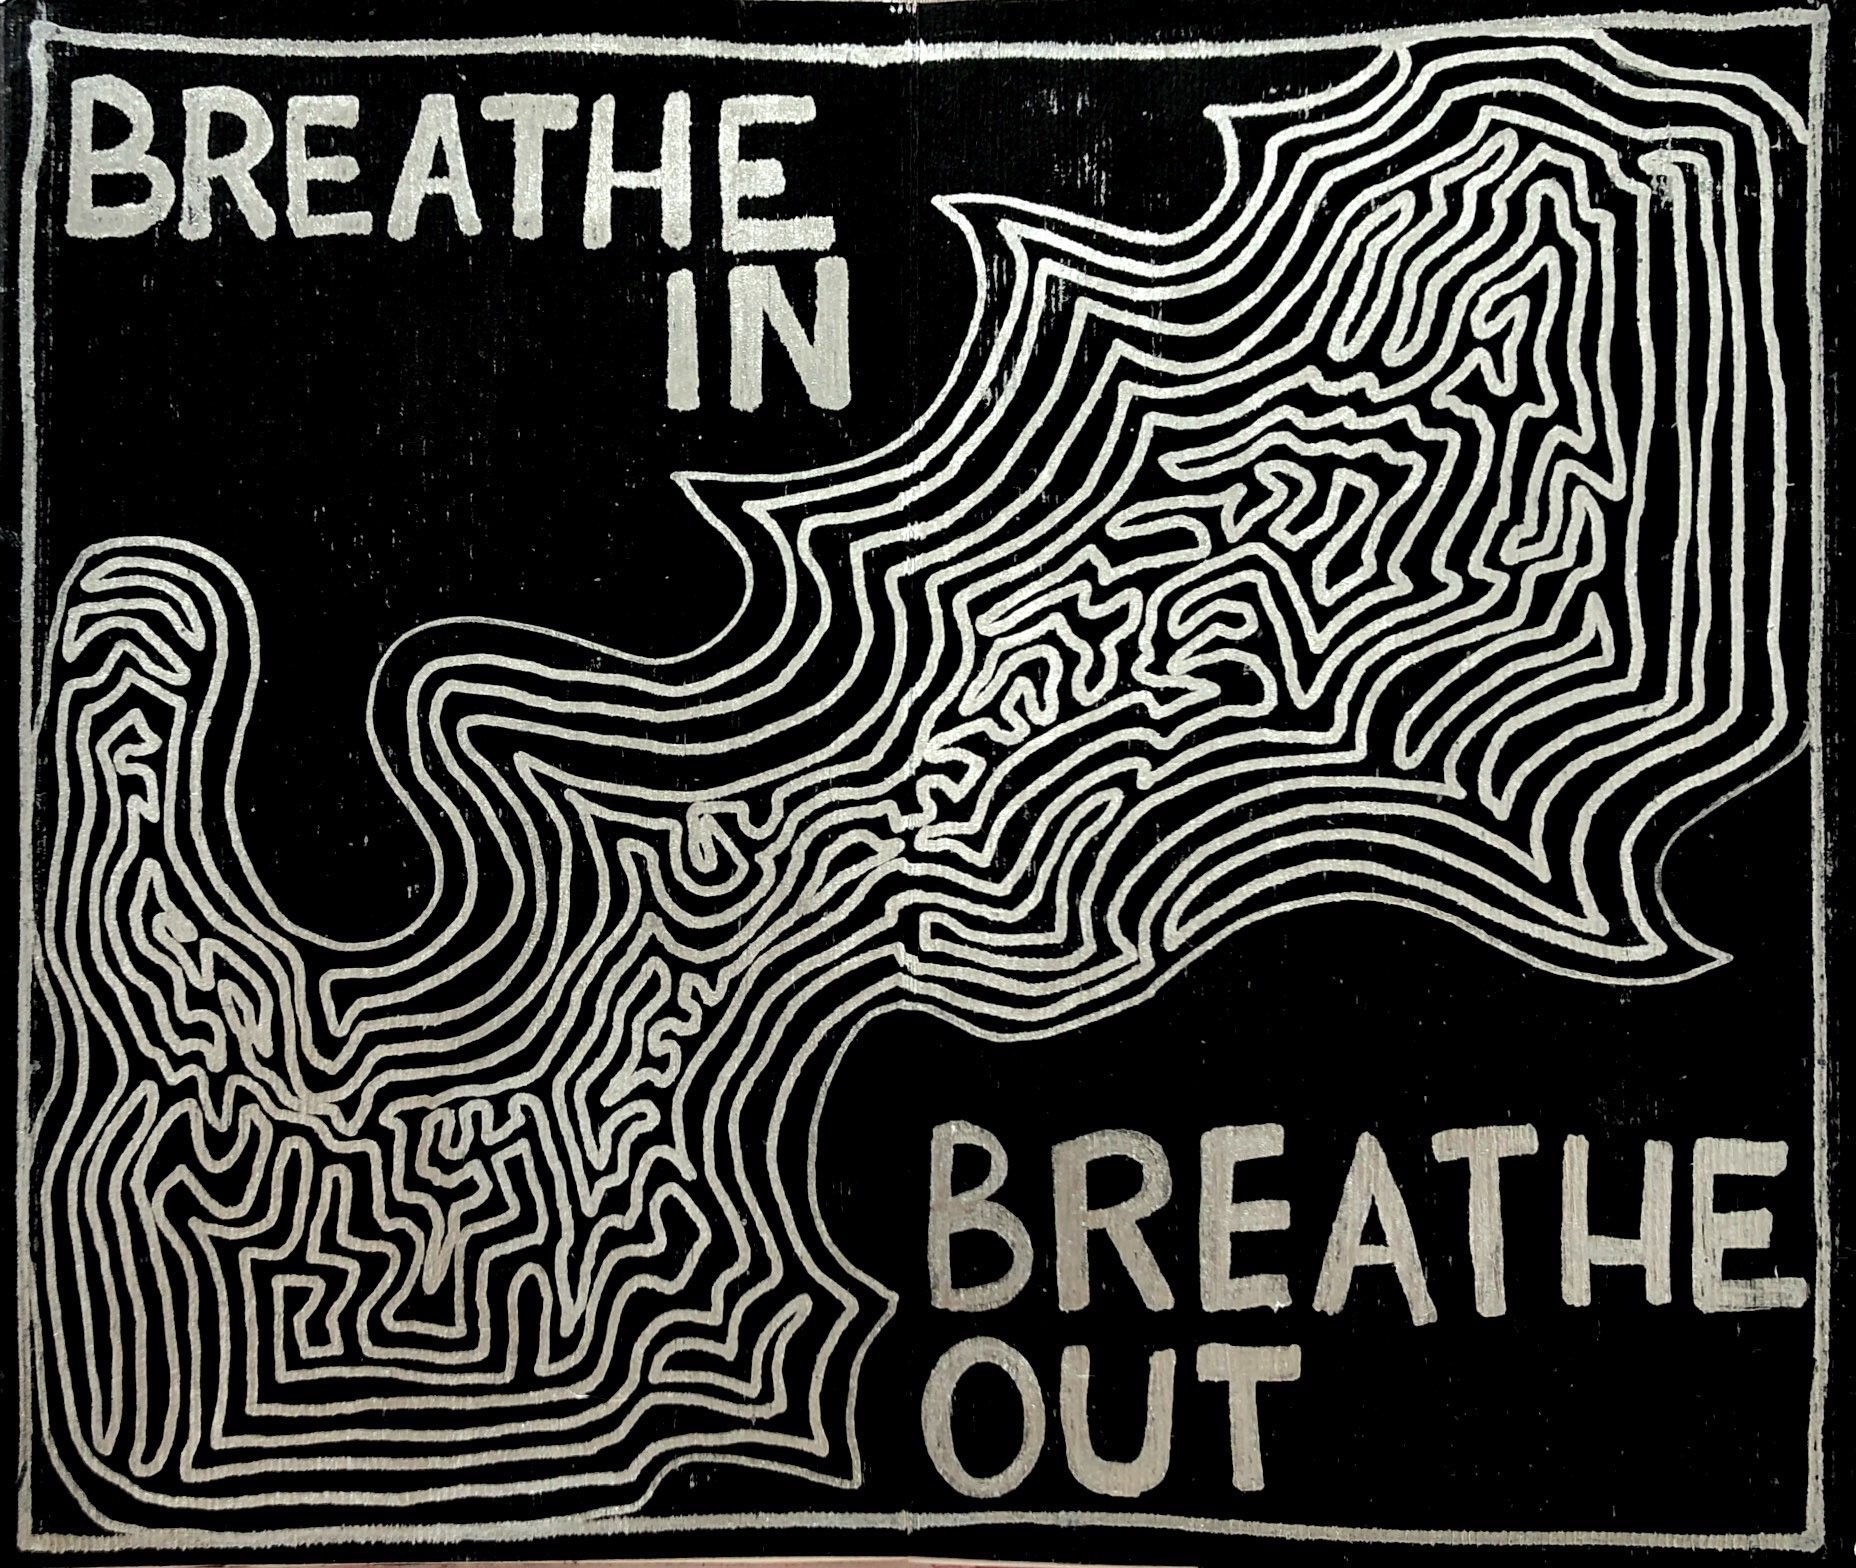 BREATHE
IN
BREATHE
OUT